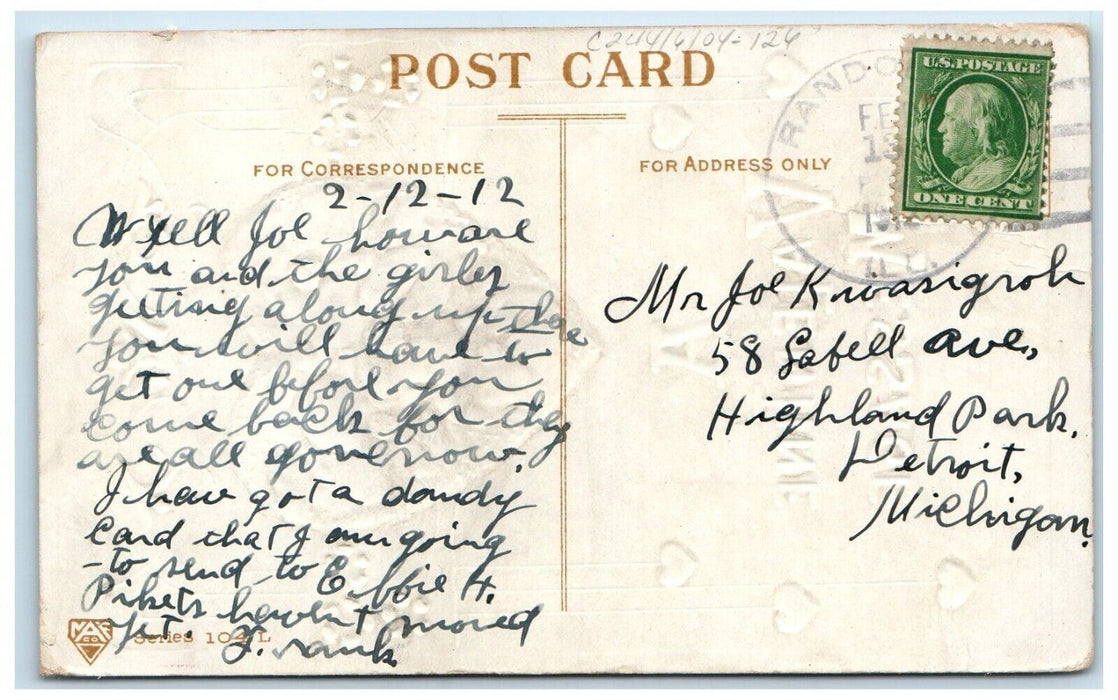 C244/6/04-126
POST CARD
FOR CORRESPONDENCE
FOR ADDRESS ONLY
U.S. POSTAGE
ONE CENT
RANDO
FE
ILL.
2-12-12
Well Joe how are
you and the girls
getting along up there
you will have to
get one before you
come back for they
are all gone now.
I have got a dandy
card that I am going
to send to Effie H.
Pikets havent moved
yet. Frank
Mr Joe Kwasigroh
58 Labell Ave,
Highland Park,
Detroit,
Michigan.
Series 104 L